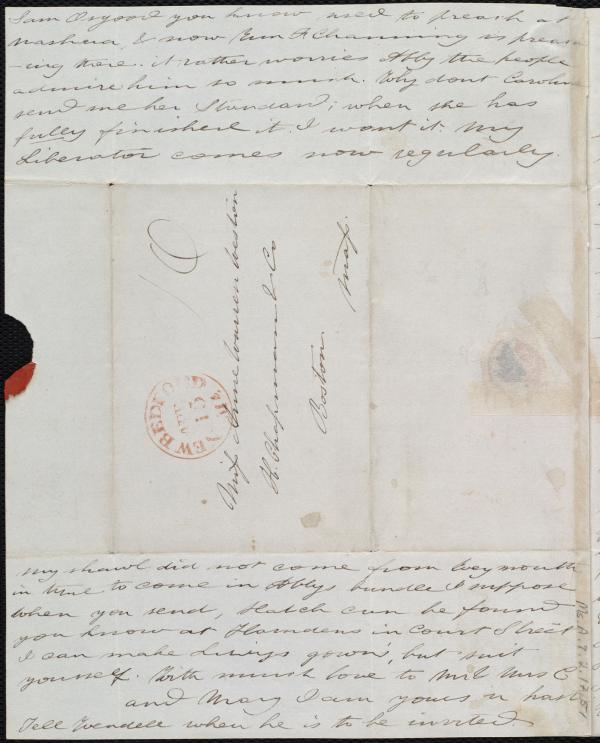 Sam Osgood you know used to preach at
Nashua, & now Wm F Channing is preach
-ing there. it rather worries Abby the people
admire him so much. Why dont Caroline
send me her Standard; when she has
fully finished it. I want it. My
Liberator comes now regularly.
10
NEW BEDFORD Ms.
APR
13
Miss Anne Warren Weston
H. Chapman & Co
Boston.
Mass.
my shawl did not come from Weymouth
in time to come in Abbys bundle I suppose
when you send, Hatch can be found
you know at Harndens in Court Street
I can make Lucys gown, but suit
yourself. With much love to Mr & Mrs C
and Mary I am yours in haste
Tell Wendell when he is to be invited.